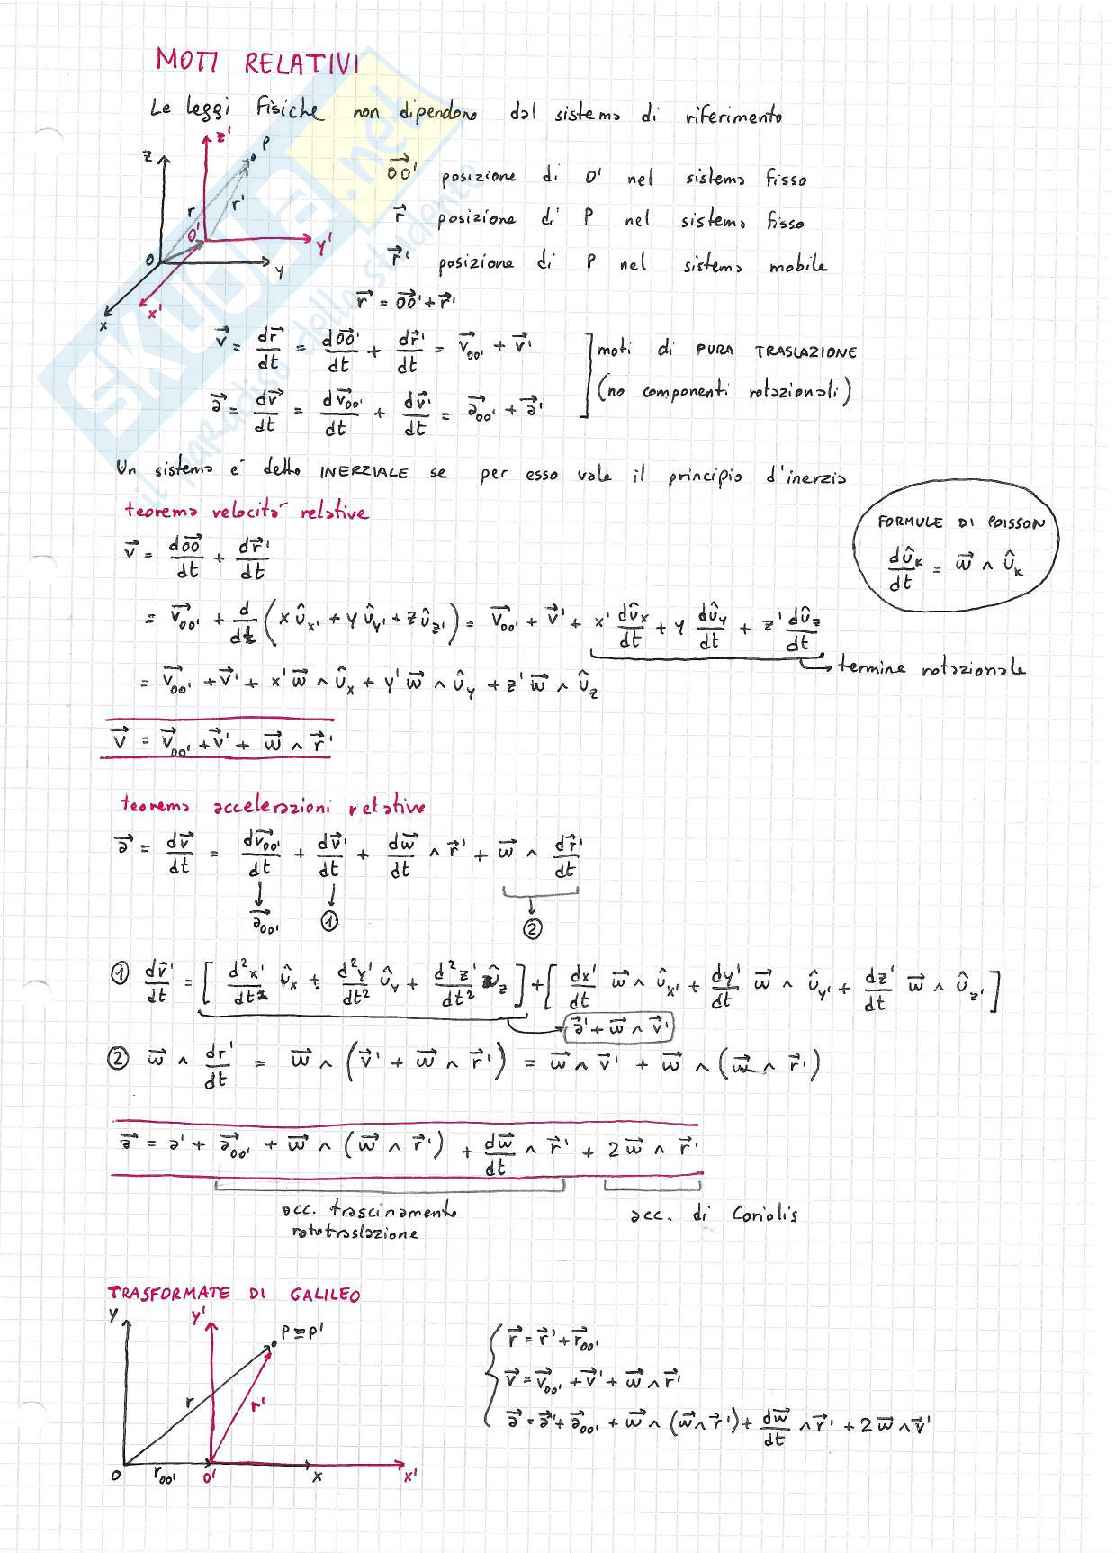 MOTI RELATIVI
Le leggi fisiche non dipendono dal sistema di riferimento
z z' P r r' O O' y y' x x'
OO⃗' posizione di O' nel sistema fisso
r⃗ posizione di P nel sistema fisso
r⃗' posizione di P nel sistema mobile
r⃗ = OO⃗' + r⃗'
v⃗ = dr⃗/dt = dOO⃗'/dt + dr⃗'/dt = v⃗₀₀' + v⃗' moti di PURA TRASLAZIONE
a⃗ = dv⃗/dt = dv⃗₀₀'/dt + dv⃗'/dt = a⃗₀₀' + a⃗' (no componenti rotazionali)
Un sistema è detto INERZIALE se per esso vale il principio d'inerzia
teorema velocità relative
FORMULE DI POISSON
dû_k/dt = w⃗ ∧ û_k
v⃗ = dOO⃗/dt + dr⃗'/dt
= v⃗₀₀' + d/dt (x û_x' + y û_y' + z û_z') = v⃗₀₀' + v⃗' + x' dû_x/dt + y dû_y/dt + z' dû_z/dt
→ termine rotazionale
= v⃗₀₀' + v⃗' + x' w⃗ ∧ û_x + y' w⃗ ∧ û_y + z' w⃗ ∧ û_z
v⃗ = v⃗₀₀' + v⃗' + w⃗ ∧ r⃗'
teorema accelerazioni relative
a⃗ = dv⃗/dt = dv⃗₀₀'/dt + dv⃗'/dt + dw⃗/dt ∧ r⃗' + w⃗ ∧ dr⃗'/dt
a⃗₀₀' ① ②
① dv⃗'/dt = [d²x'/dt² û_x + d²y'/dt² û_y + d²z'/dt² û_z] + [dx'/dt w⃗ ∧ û_x' + dy'/dt w⃗ ∧ û_y' + dz'/dt w⃗ ∧ û_z']
a⃗' + w⃗ ∧ v⃗'
② w⃗ ∧ dr'/dt = w⃗ ∧ (v⃗' + w⃗ ∧ r⃗') = w⃗ ∧ v⃗' + w⃗ ∧ (w⃗ ∧ r⃗')
a⃗ = a' + a⃗₀₀' + w⃗ ∧ (w⃗ ∧ r⃗') + dw⃗/dt ∧ r⃗' + 2w⃗ ∧ r⃗'
acc. trascinamento acc. di Coriolis
rototraslazione
TRASFORMATE DI GALILEO
y y' P≡P' r r' O r₀₀' O' x x'
r⃗ = r⃗' + r⃗₀₀'
v⃗ = v⃗₀₀' + v⃗' + w⃗ ∧ r⃗'
a⃗ = a⃗' + a⃗₀₀' + w⃗ ∧ (w⃗ ∧ r⃗') + dw⃗/dt ∧ r⃗' + 2w⃗ ∧ v⃗'
SKUOLA.net
il paradiso dello studente